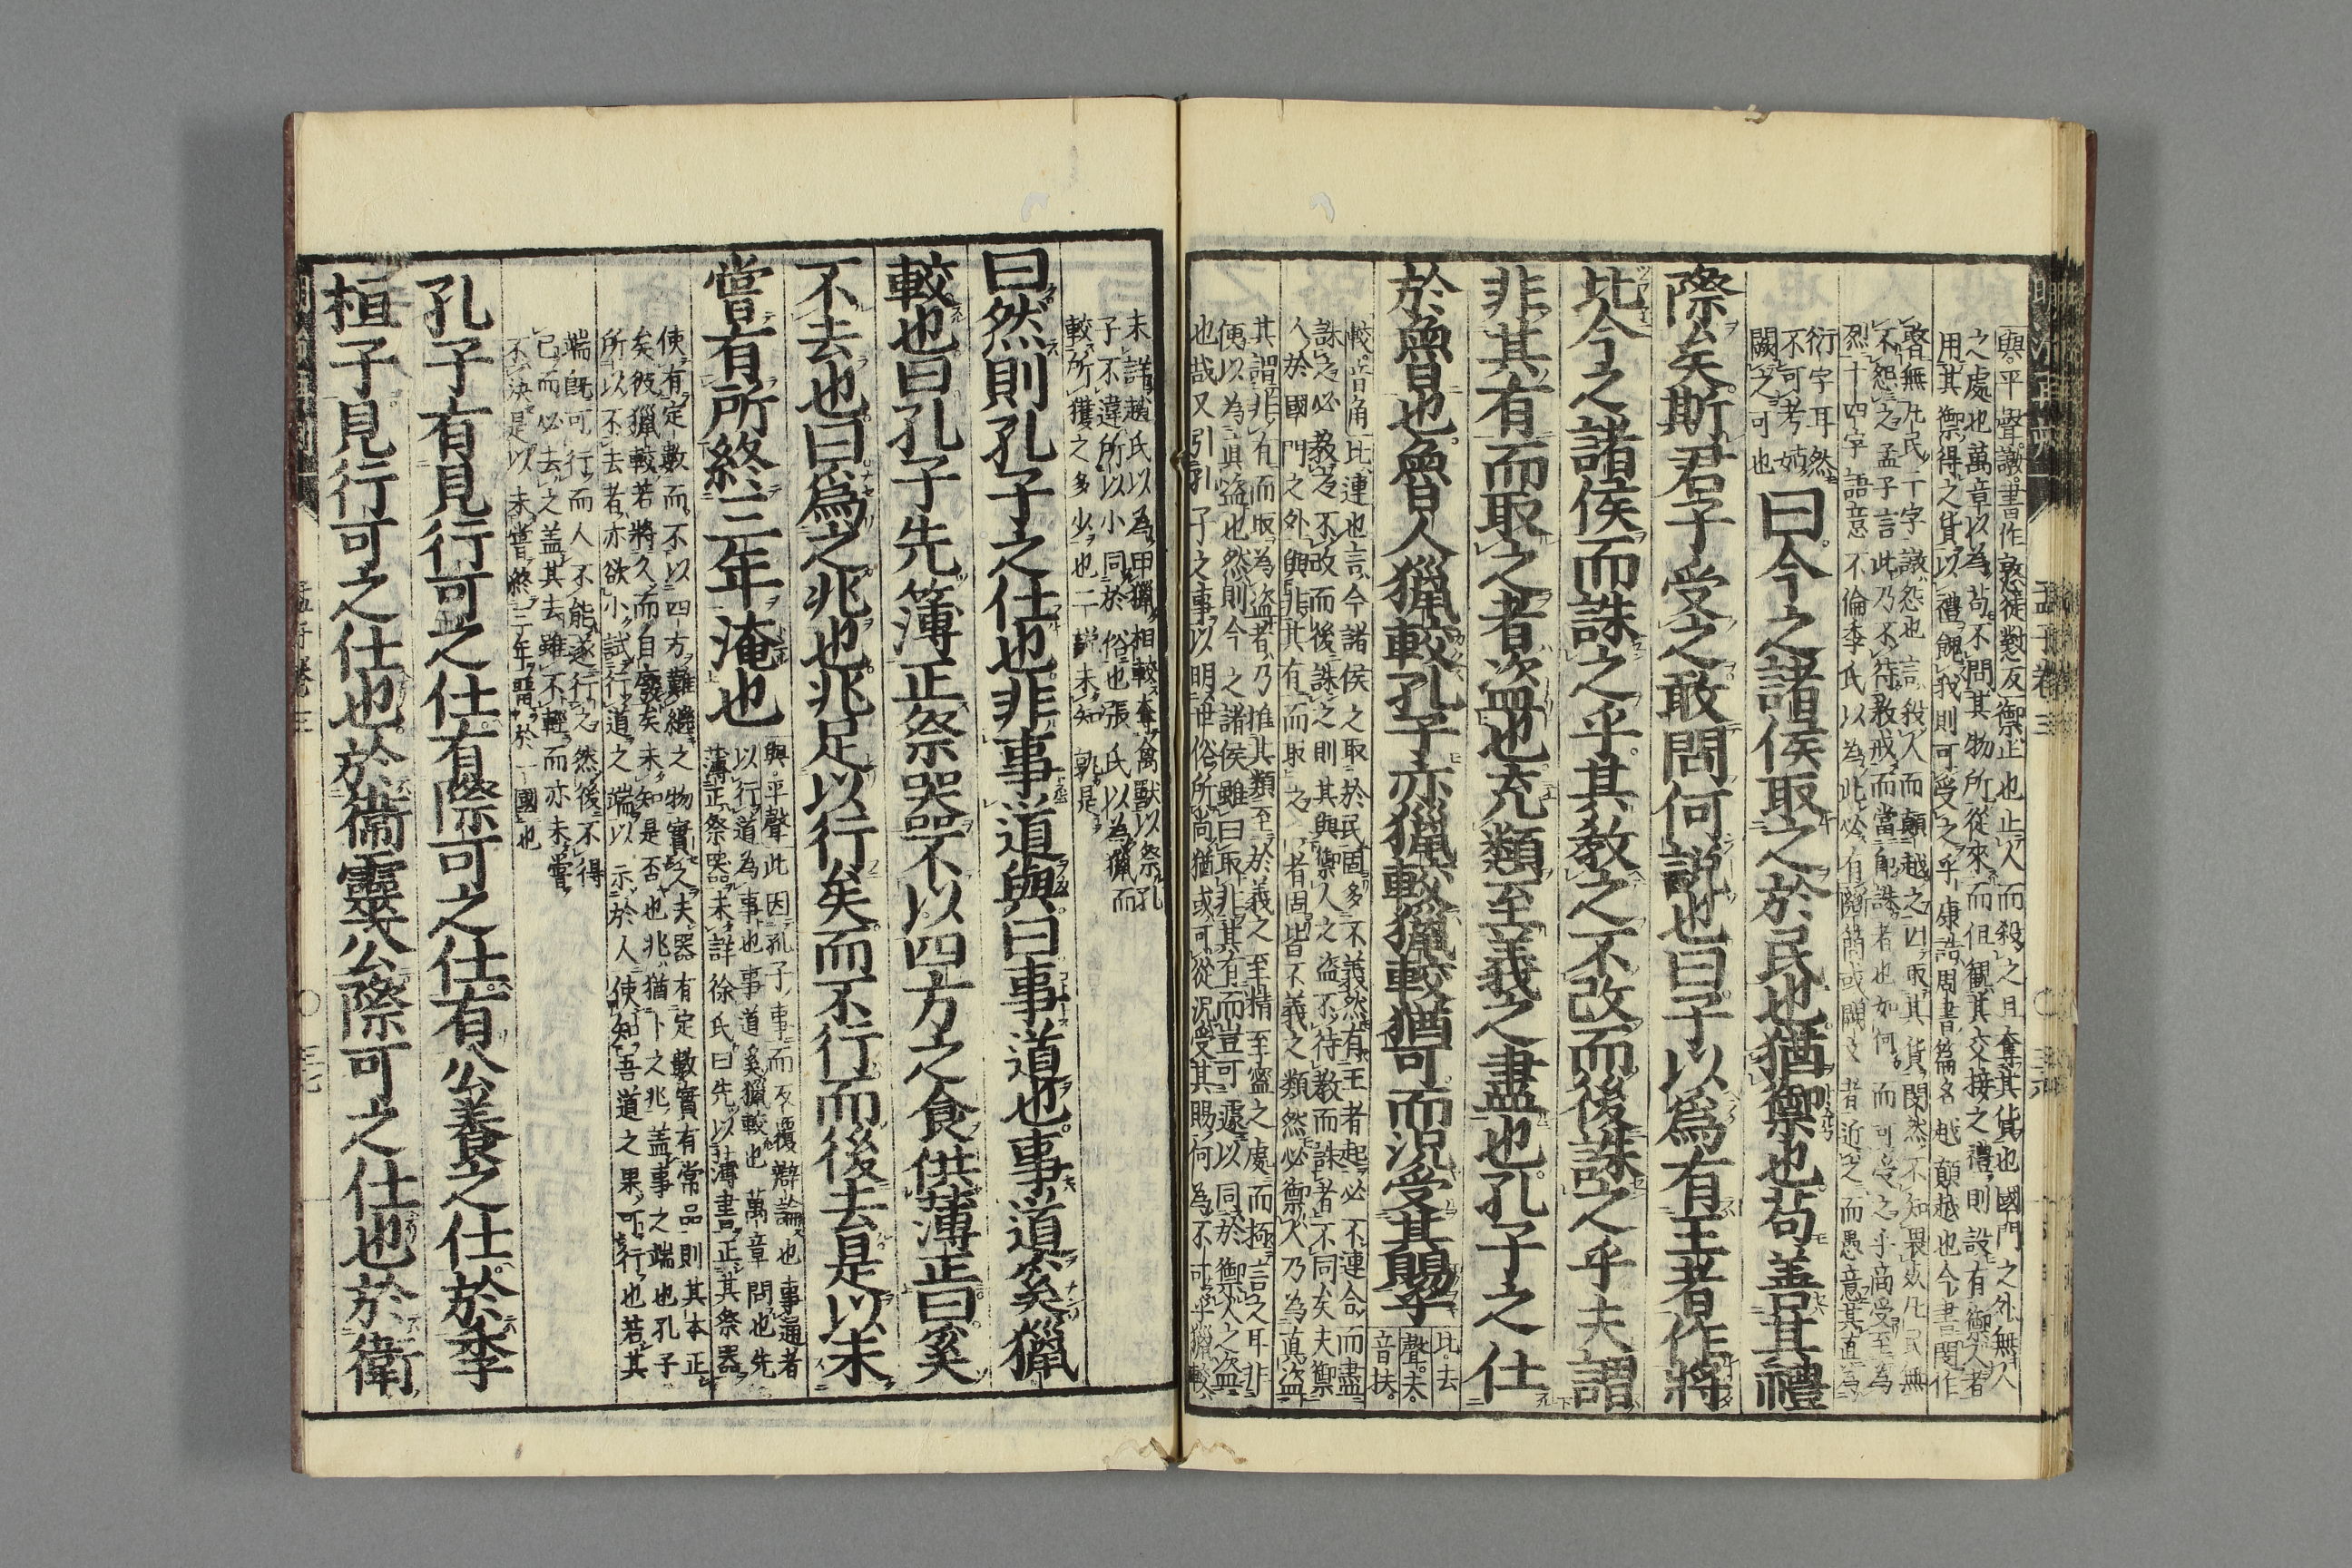 孟子卷三
三六
與平聲譈書作憝徒對反禦止也止人而殺之且奪其貨也國門之外無人
之處也萬章以為苟不問其物所從來而但觀其交接之禮則設有禦人者
用其禦得之貨以禮餽我則可受之乎康誥周書篇名越顛越也今書閔作
暋無凡民二字譈怨也言殺人而顛越之因取其貨閔然不知畏死凡民無
不怨之孟子言此乃不待教戒而當即誅者也如何而可受之乎商受至為
烈十四字語意不倫李氏以為此必有斷簡或闕文者近之而愚意其直為
衍字耳然
不可考姑
闕之可也
曰今之諸侯取之於民也猶禦也苟善其禮
際矣斯君子受之敢問何說也曰子以爲有王者作將
比今之諸侯而誅之乎其教之不改而後誅之乎夫謂
非其有而取之者盜也充類至義之盡也孔子之仕
於魯也魯人獵較孔子亦獵較獵較猶可而況受其賜乎
比去
聲夫
音扶
較音角比連也言今諸侯之取於民固多不義然有王者起必不連合而盡
誅之必教之不改而後誅之則其與禦人之盜不待教而誅者不同矣夫禦
人於國門之外與非其有而取之二者固皆不義之類然必禦人乃為真盜
其謂非有而取為盜者乃推其類至於義之至精至密之處而極言之耳非
便以為真盜也然則今之諸侯雖曰取非其有而豈可遽以同於禦人之盜
也哉又引孔子之事以明世俗所尚猶或可從況受其賜何為不可乎獵較
未詳趙氏以為田獵相較奪禽獸以祭孔
子不違所以小同於俗也張氏以為獵而
較所獲之多少也二說未知孰是
曰然則孔子之仕也非事道與曰事道也事道奚獵
較也曰孔子先簿正祭器不以四方之食供簿正曰奚
不去也曰爲之兆也兆足以行矣而不行而後去是以未
嘗有所終三年淹也
與平聲此因孔子事而反覆辯論也事道者
以行道為事也事道奚獵較也萬章問也先
簿正祭器未詳徐氏曰先以簿書正其祭器
使有定數而不以四方難繼之物實之夫器有定數實有常品則其本正
矣彼獵較若將久而自廢矣未知是否也兆猶卜之兆蓋事之端也孔子
所以不去者亦欲小試行道之端以示於人使知吾道之果可行也若其
端既可行而人不能遂行之然後不得
已而必去之蓋其去雖不輕而亦未嘗
不決是以未嘗終三年留於一國也
孔子有見行可之仕有際可之仕有公養之仕於季
桓子見行可之仕也於衛靈公際可之仕也於衛
孟子卷三
三七